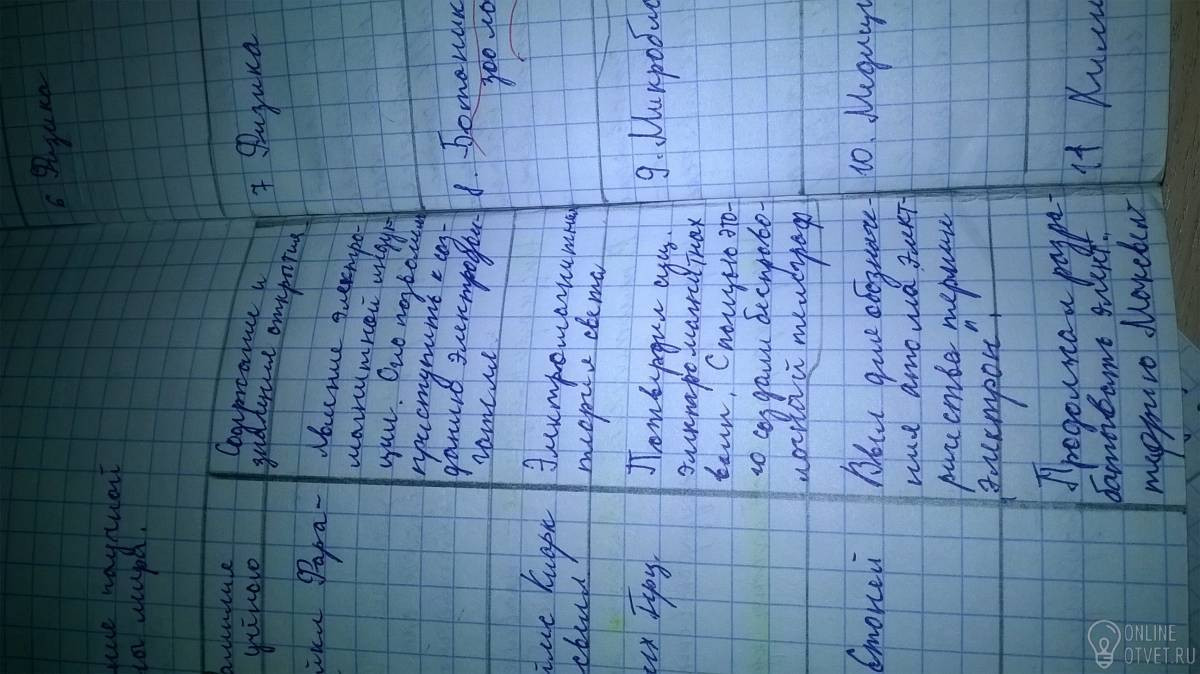 ние научной
ны мира.
амилие
учёного
Содержание и
значение открытия
йкл Фара-
Явление электро-
магнитной индук-
ции. Оно позволило
приступить к соз-
данию электродви-
гателя.
ймс Кларк
свелл
Электромагнитная
теория света
их Герц
Потвердил сущ.
электромагнитных
волн. С помощью это-
го создали беспрово-
лочный телеграф
Стоней
Ввел для обозначе-
ния атома элект-
ричества термин
"электрон"
Продолжал разра-
батывать элект.
теорию Максвел
6 Физика
7 Физика
8. Ботаник
зоо ло
9. Микробио
10. Медици
11 Хими
ONLINE
OTVET.RU